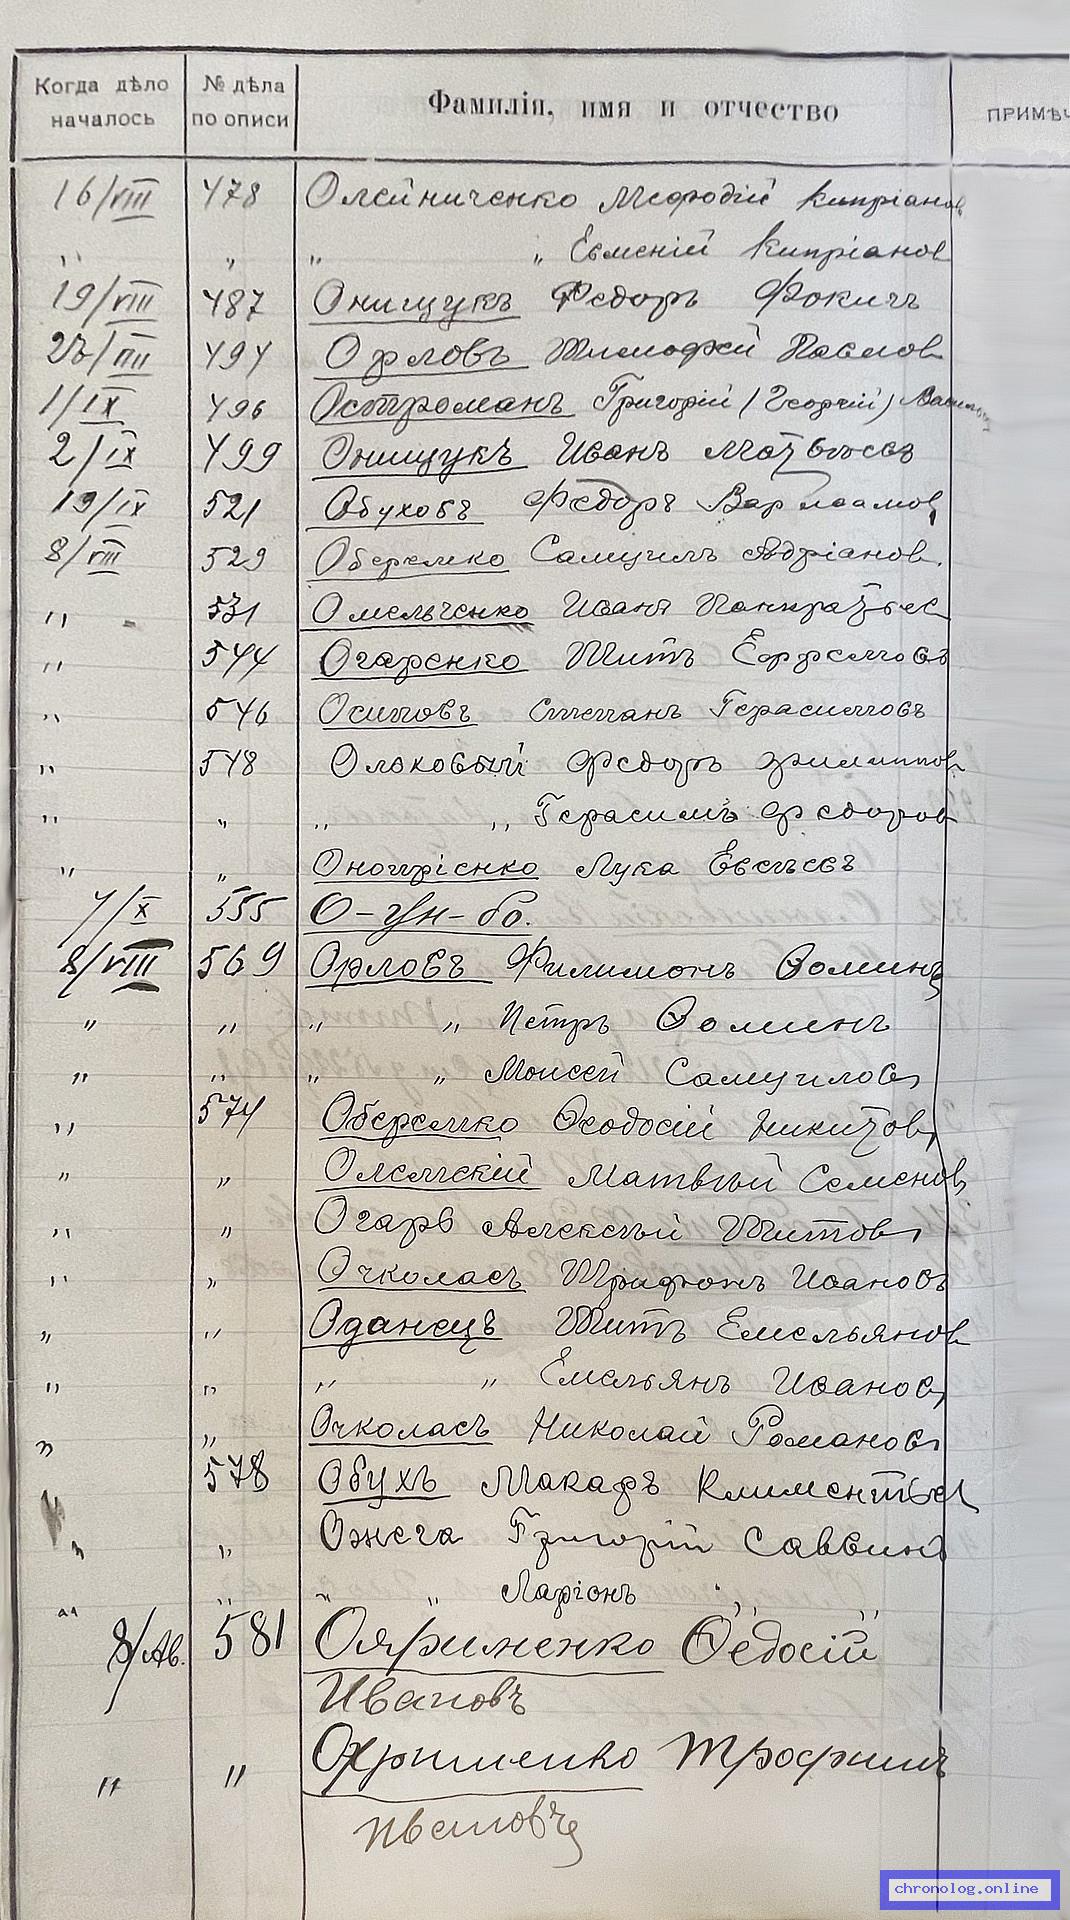 Когда дѣло началось № дѣла по описи Фамилія, имя и отчество ПРИМѢЧ
16/VIII 478 Олейниченко Мефодій Кипріанов
,, ,, ,, ,, Евменій Кипріанов
19/VIII 487 Онищукъ Федоръ Фокичъ
494 Орловъ Тимофей Павлов
1/IX 496 Остроманъ Григорій (Георгій)
2/IX 499 Онищукъ Иванъ Матвѣевъ
19/IX 521 Обуховъ Федоръ Варлаамов
8/VIII 529 Оберемко Самуилъ Андріанов.
,, 531 Омельченко Иванъ Панкратьев
,, 544 Огаренко Титъ Ефремовъ
,, 546 Осиповъ Степанъ Герасимовъ
,, 548 Ольховый Федоръ Филиппов
,, ,, ,, ,, Герасимъ Федоров
,, ,, Онопріенко Лука Евсѣевъ
4/X 555 О-Ун-бо.
8/VIII 569 Орловъ Филимонъ Ѳоминъ
,, ,, ,, ,, Петръ Ѳоминъ
,, ,, ,, ,, Моисей Самуилов
,, 574 Оберемко Ѳеодосій Никитов
,, ,, Олемскій Матвѣй Семенов
,, ,, Огарь Алексѣй Титов
,, ,, Очколасъ Трифонъ Ивановъ
,, ,, Оданецъ Титъ Емельянов
,, ,, ,, ,, Емельянъ Иванов
,, ,, Очколасъ Николай Романов
578 Обухъ Макаръ Климентьев
,, ,, Ожега Григорій Саввинъ
,, ,, ,, ,, Ларіонъ ,, ,,
8/Ав. 581 Ояфименко Ѳедосій
Ивановъ
,, ,, Охрименко Трофимъ
Ивановъ
chronolog.online